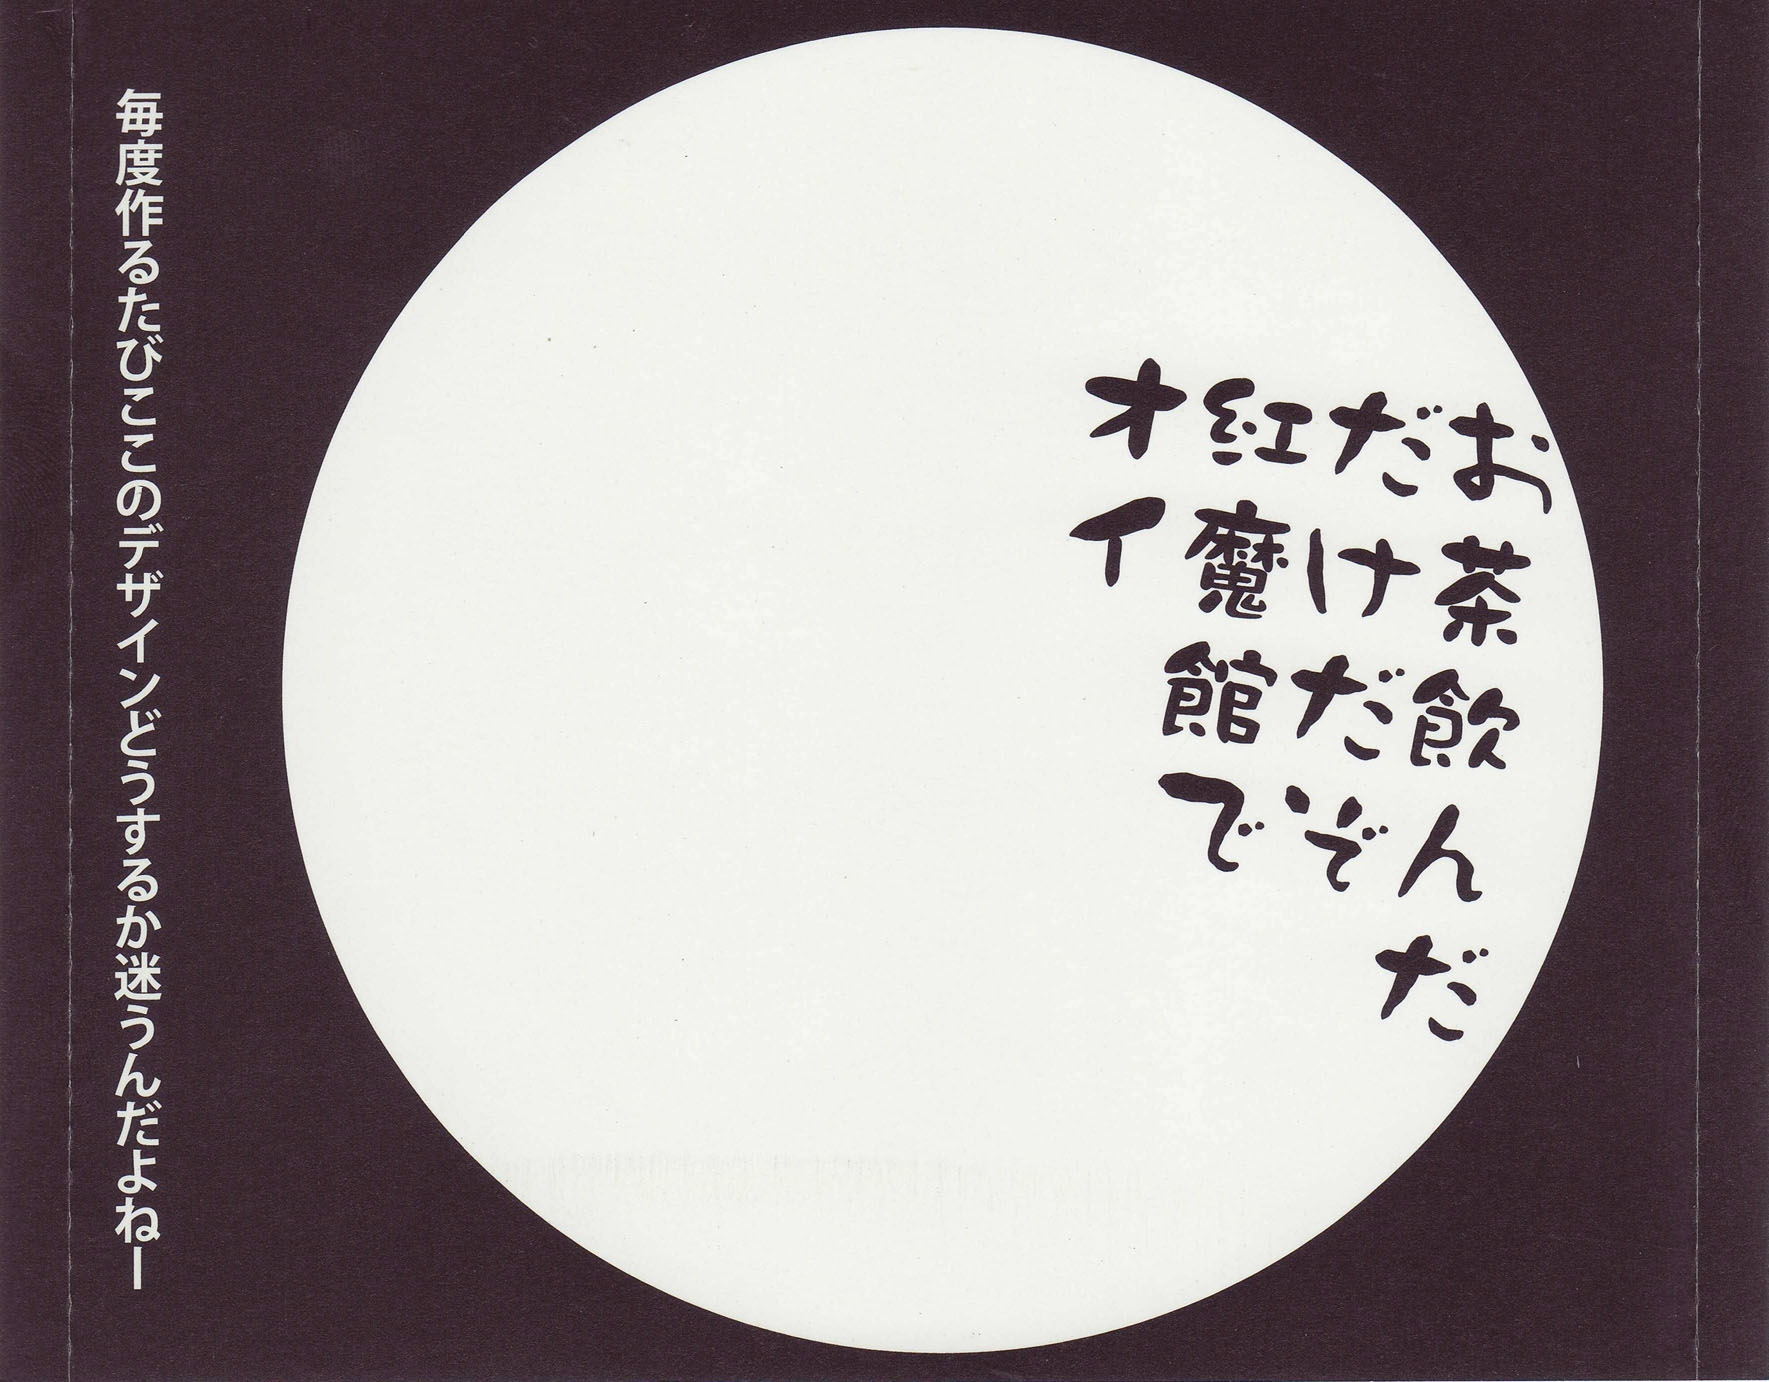 お茶飲んだ
だけだぞ
紅魔館で
オイ
毎度作るたびここのデザインどうするか迷うんだよねー